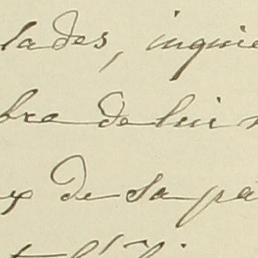 lades, inquie
bre de lui
x de sa pa